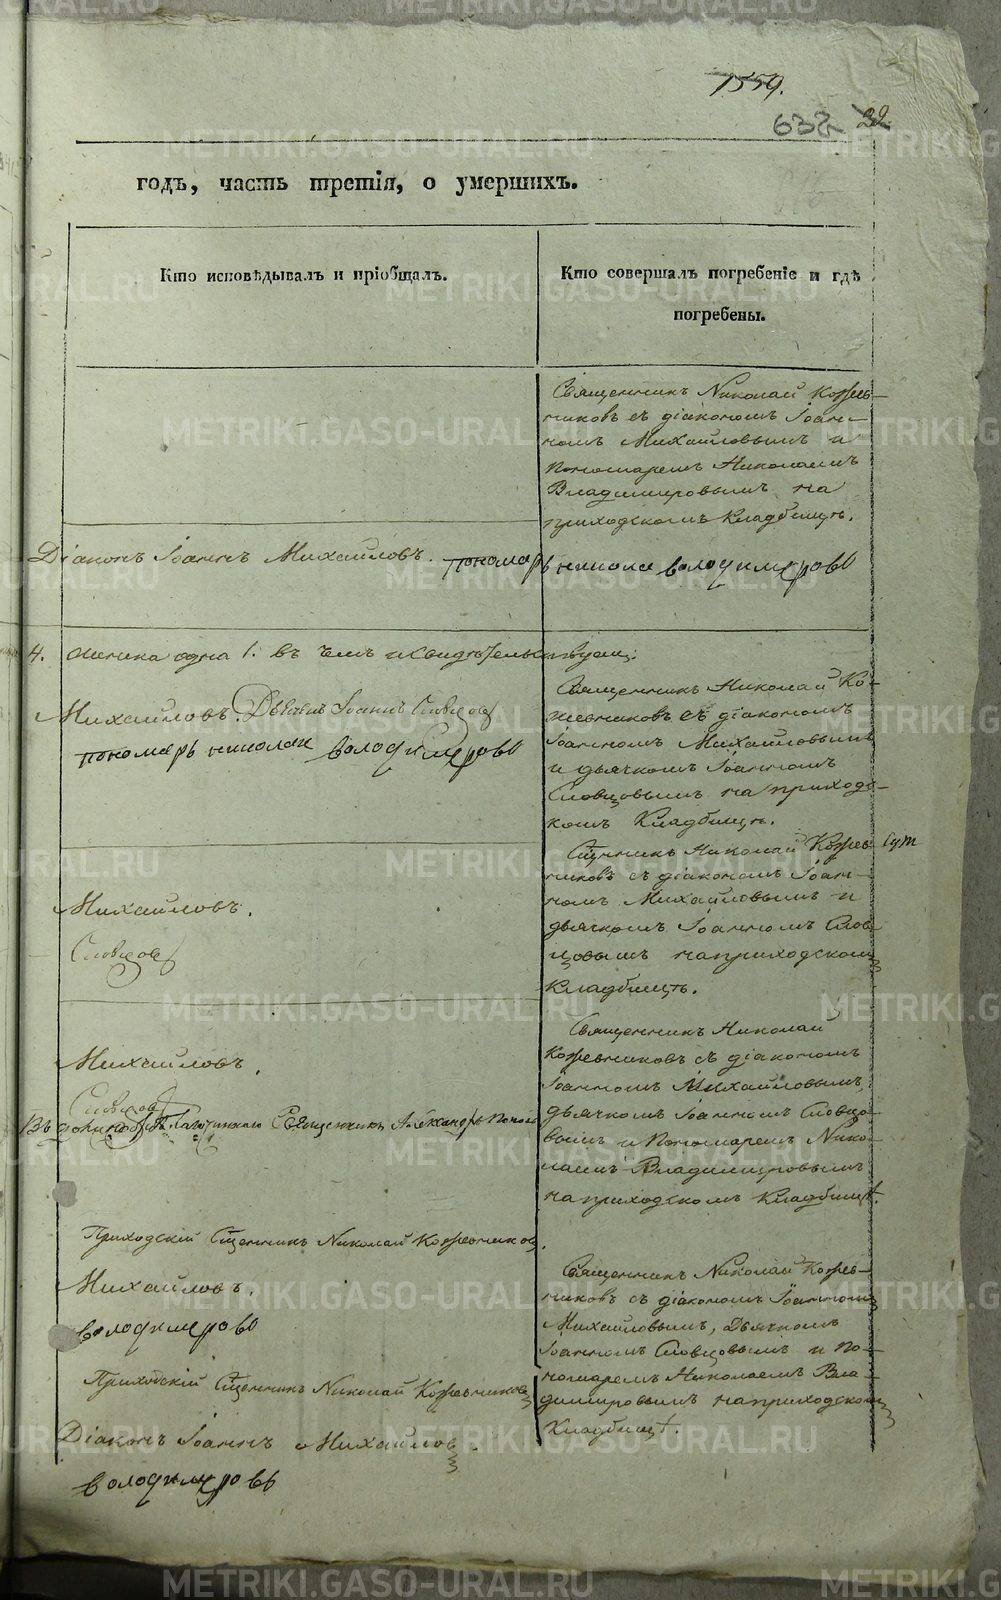 1559.
632 32
годъ, часть третія, о умершихъ.
Кто исповѣдывалъ и пріобщалъ.
Кто совершалъ погребеніе и гдѣ
погребены.
Священникъ Николай Кожев-
никовъ съ діакономъ Іоан-
номъ Михайловымъ и
Пономаремъ Николаемъ
Владимировымъ на
приходскомъ Кладбищѣ.
Діаконъ Іоаннъ Михайловъ. пономарь николае володимерово
4. женска одна 1. въ чемъ и свидѣтельствуем:
Михайловъ. Дьячекъ Іоаннъ Словцовъ
пономарь николаи володимерово
Священникъ Николай Ко-
жевниковъ съ діакономъ
Іоанномъ Михайловымъ
и дьячкомъ Іоанномъ
Словцовымъ на приходс-
комъ Кладбищѣ.
Михайловъ.
Словцовъ
Сщнникъ Николай Кожев-
никовъ съ діакономъ Іоан-
номъ Михайловымъ и
дьячкомъ Іоанномъ Слов-
цовымъ на приходскомъ
Кладбищѣ.
Михайловъ.
Словцовъ
Священникъ Александръ Попов
Священникъ Николай
Кожевниковъ съ діакономъ
Іоанномъ Михайловымъ,
дьячкомъ Іоанномъ Словцо-
вымъ и Пономаремъ Нико-
лаемъ Владимировымъ
на приходскомъ Кладбищѣ.
Приходскій Сщенникъ Николай Кожевников.
Михайловъ.
володимерово
Приходскій Сщенникъ Николай Кожевниковъ
Діаконъ Іоаннъ Михайловъ.
володимеровъ
Священникъ Николай Кожев-
никовъ съ діакономъ Іоанномъ
Михайловымъ, Дьячкомъ
Іоанномъ Словцовымъ и По-
номаремъ Николаемъ Вла-
димировымъ на приходскомъ
Кладбищѣ.
METRIKI.GASO-URAL.RU